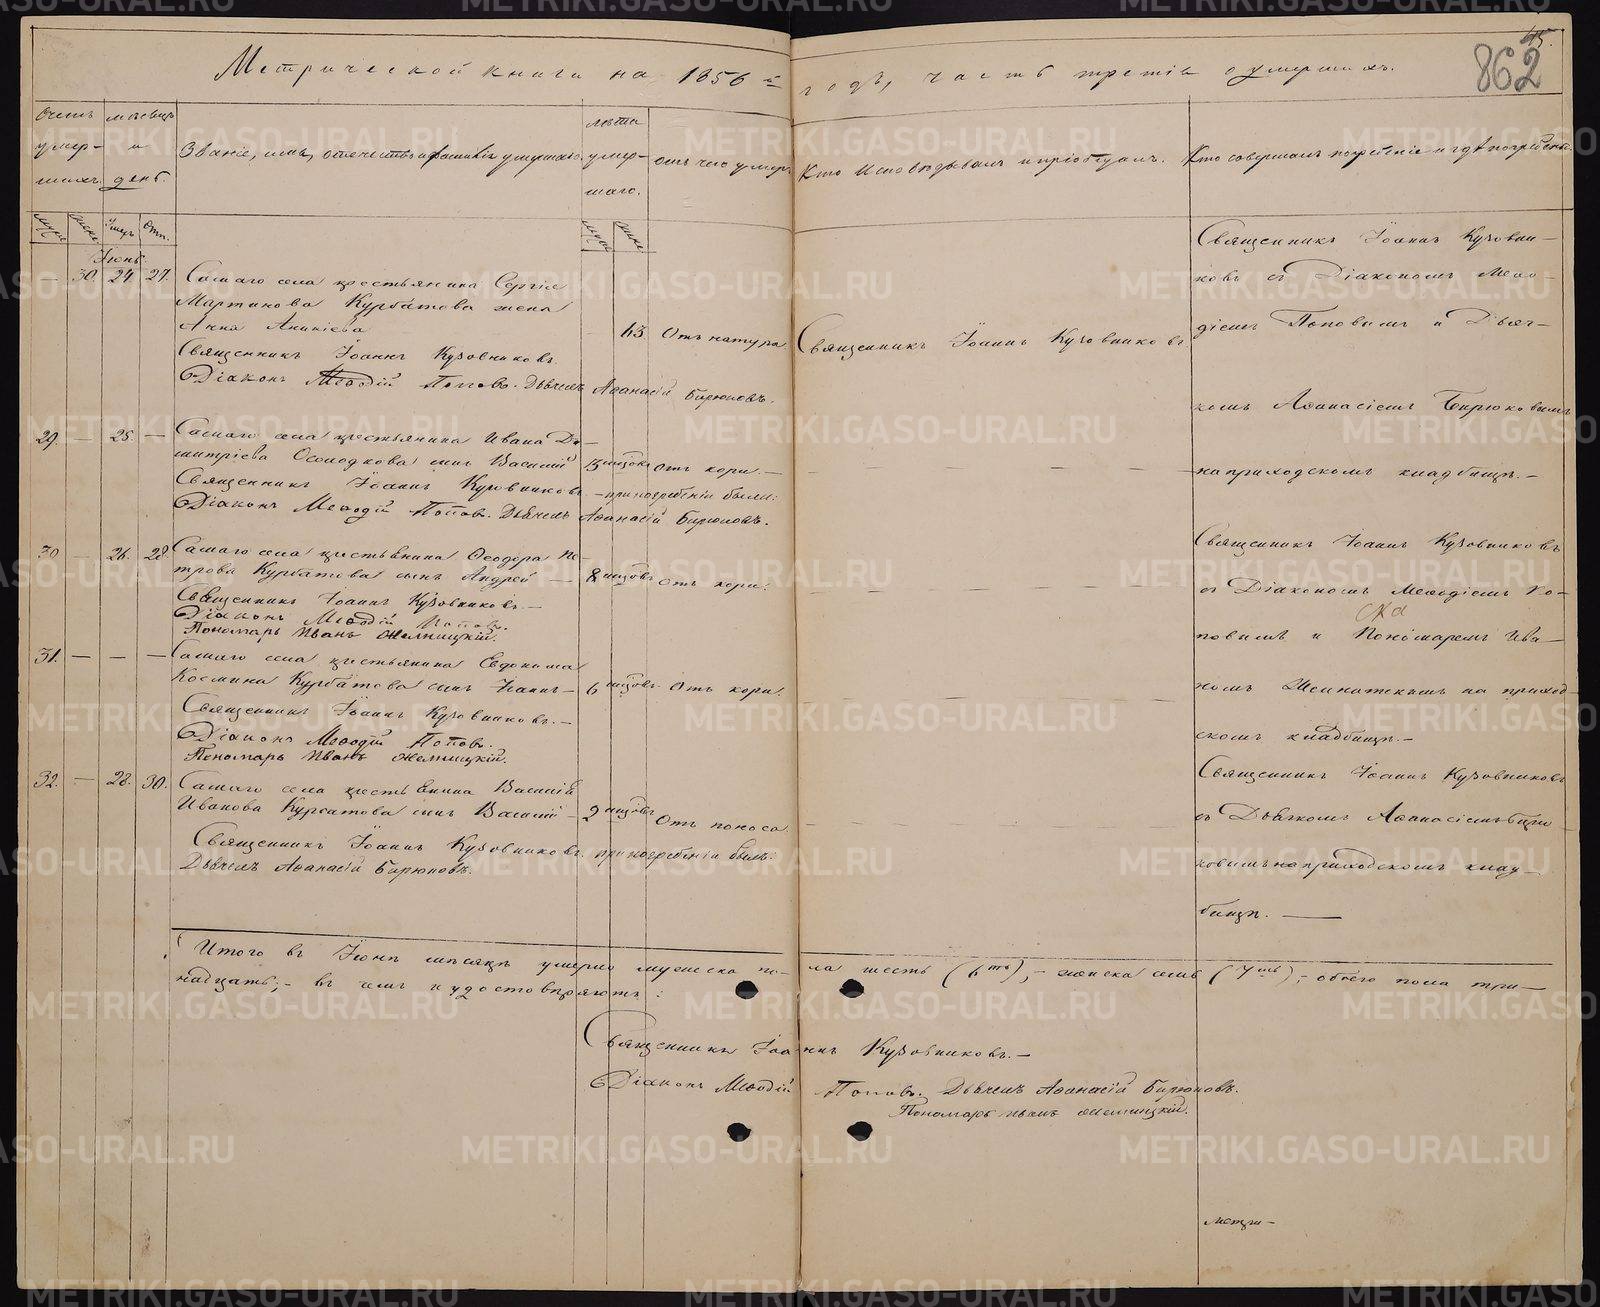 Метрической книги на 1856й годъ, часть третія о умершихъ.
45.
862
Счетъ умершихъ.
мѣсяцъ и день.
Званіе, имя, отечество и фамилія умершаго.
лѣта умершаго.
отъ чего умеръ
Кто исповѣдывалъ и пріобщалъ.
Кто совершалъ погребеніе и гдѣ погребены.
муж. женс. Умер. Отп.
муж. женс.
Іюнь.
30. 24. 27. Самаго села крестьянина Сергія
Мартинова Курбатова жена
Анна Ананіева 63. Отъ натуры Священникъ Іоаннъ Кузовниковъ.
Священникъ Іоаннъ Кузовниковъ.
Діаконъ Меѳодій Поповъ. Дьячекъ Аѳанасій Бирюковъ.
Священникъ Іоаннъ Кузовни-
ковъ съ Діакономъ Меѳо-
діемъ Поповымъ и Дьяч-
комъ Аѳанасіемъ Бирюковымъ
на приходскомъ кладбищѣ.—
29. — 25. — Самаго села крестьянина Ивана Ди-
митріева сынъ Василій отъ кори.—
Священникъ Іоаннъ Кузовниковъ — при погребеніи были:
Діаконъ Меѳодій Поповъ. Дьячекъ Аѳанасій Бирюковъ.
30 — 26. 28. Самаго села крестьянина Ѳеодора Пе-
трова Курбатова сынъ Андрей — 8 мѣцовъ отъ кори.
Священникъ Іоаннъ Кузовниковъ.—
Діаконъ Меѳодій Поповъ.
Пономарь Иванъ
Священникъ Іоаннъ Кузовниковъ
съ Діакономъ Меѳодіемъ По-
повымъ и Пономаремъ Ива-
номъ на приход-
скомъ кладбищѣ.—
31. — — — Самаго села крестьянина Евдокима
Космина Курбатова сынъ Іоаннъ — 6 мѣцовъ. Отъ кори.
Священникъ Іоаннъ Кузовниковъ.—
Діаконъ Меѳодій Поповъ.
Пономарь Иванъ
32. — 28. 30. Самаго села крестьянина Василія
Иванова Курбатова сынъ Василій — 2 мѣцовъ Отъ поноса
Священникъ Іоаннъ Кузовниковъ. при погребеніи былъ.
Дьячекъ Аѳанасій Бирюковъ.
Священникъ Іоаннъ Кузовниковъ
съ Дьячкомъ Аѳанасіемъ Бирю-
ковымъ на приходскомъ клад-
бищѣ. —
Итого въ Іюнѣ мѣсяцѣ умерло мужеска по-ла шесть (6ть),— женска семь (7мь);— обоего пола три-
надцать;— въ чемъ и удостовѣряютъ:
Священникъ Іоаннъ Кузовниковъ.—
Діаконъ Меѳодій Поповъ. Дьячекъ Аѳанасій Бирюковъ.
Пономарь Иванъ
метри-
METRIKI.GASO-URAL.RU